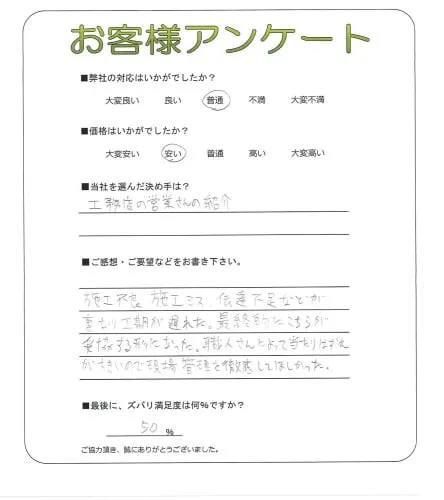 お客様アンケート
■弊社の対応はいかがでしたか？
大変良い 良い 普通 不満 大変不満
■価格はいかがでしたか？
大変安い 安い 普通 高い 大変高い
■当社を選んだ決め手は？
工務店の営業さんの紹介
■ご感想・ご要望などをお書き下さい。
施工不良 施工ミス 伝達不足などが
重なり工期が遅れた。最終的にこちらが
妥協する形になった。職人さんによって当たりはずれ
が大きいので現場管理を徹底してほしかった。
■最後に、ズバリ満足度は何%ですか？
50 %
ご協力頂き、誠にありがとうございました。